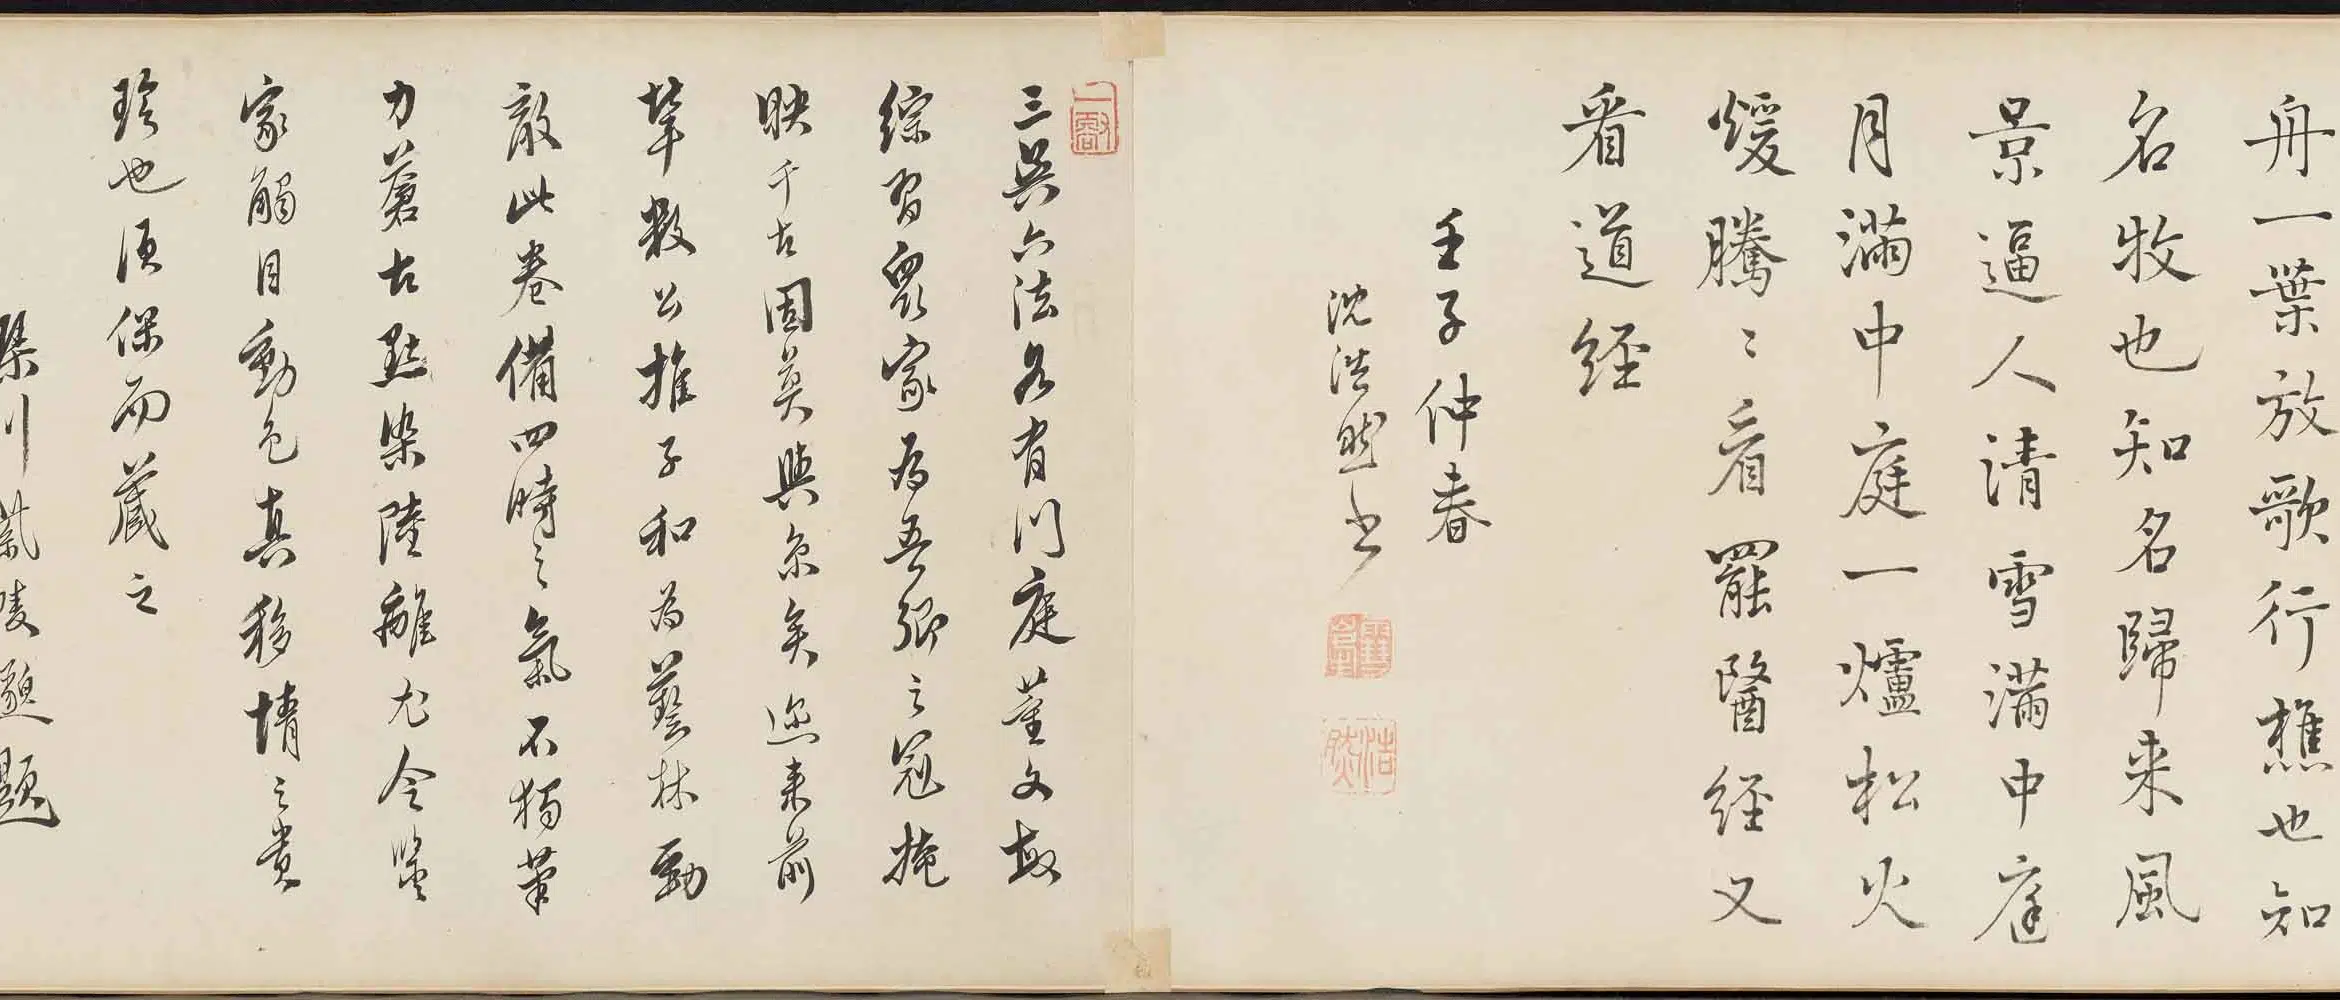 舟一葉放歌行樵也知
名牧也知名歸来風
景逼人清雪滿中庭
月滿中庭一爐松火
煖騰〻看罷醫經又
看道経
壬子仲春
沈浩然书
浩然
三吳六法各有門庭董文敏
綜習眾家為吾鄉之冠掩
映千古固莫與京矣近来前
輩數公推子和為藝林勁
敵此卷備四時之氣不獨筆
力蒼古點染陸離尤令鑒
家觸目動色真移情之貴
珍也須保而藏之
題